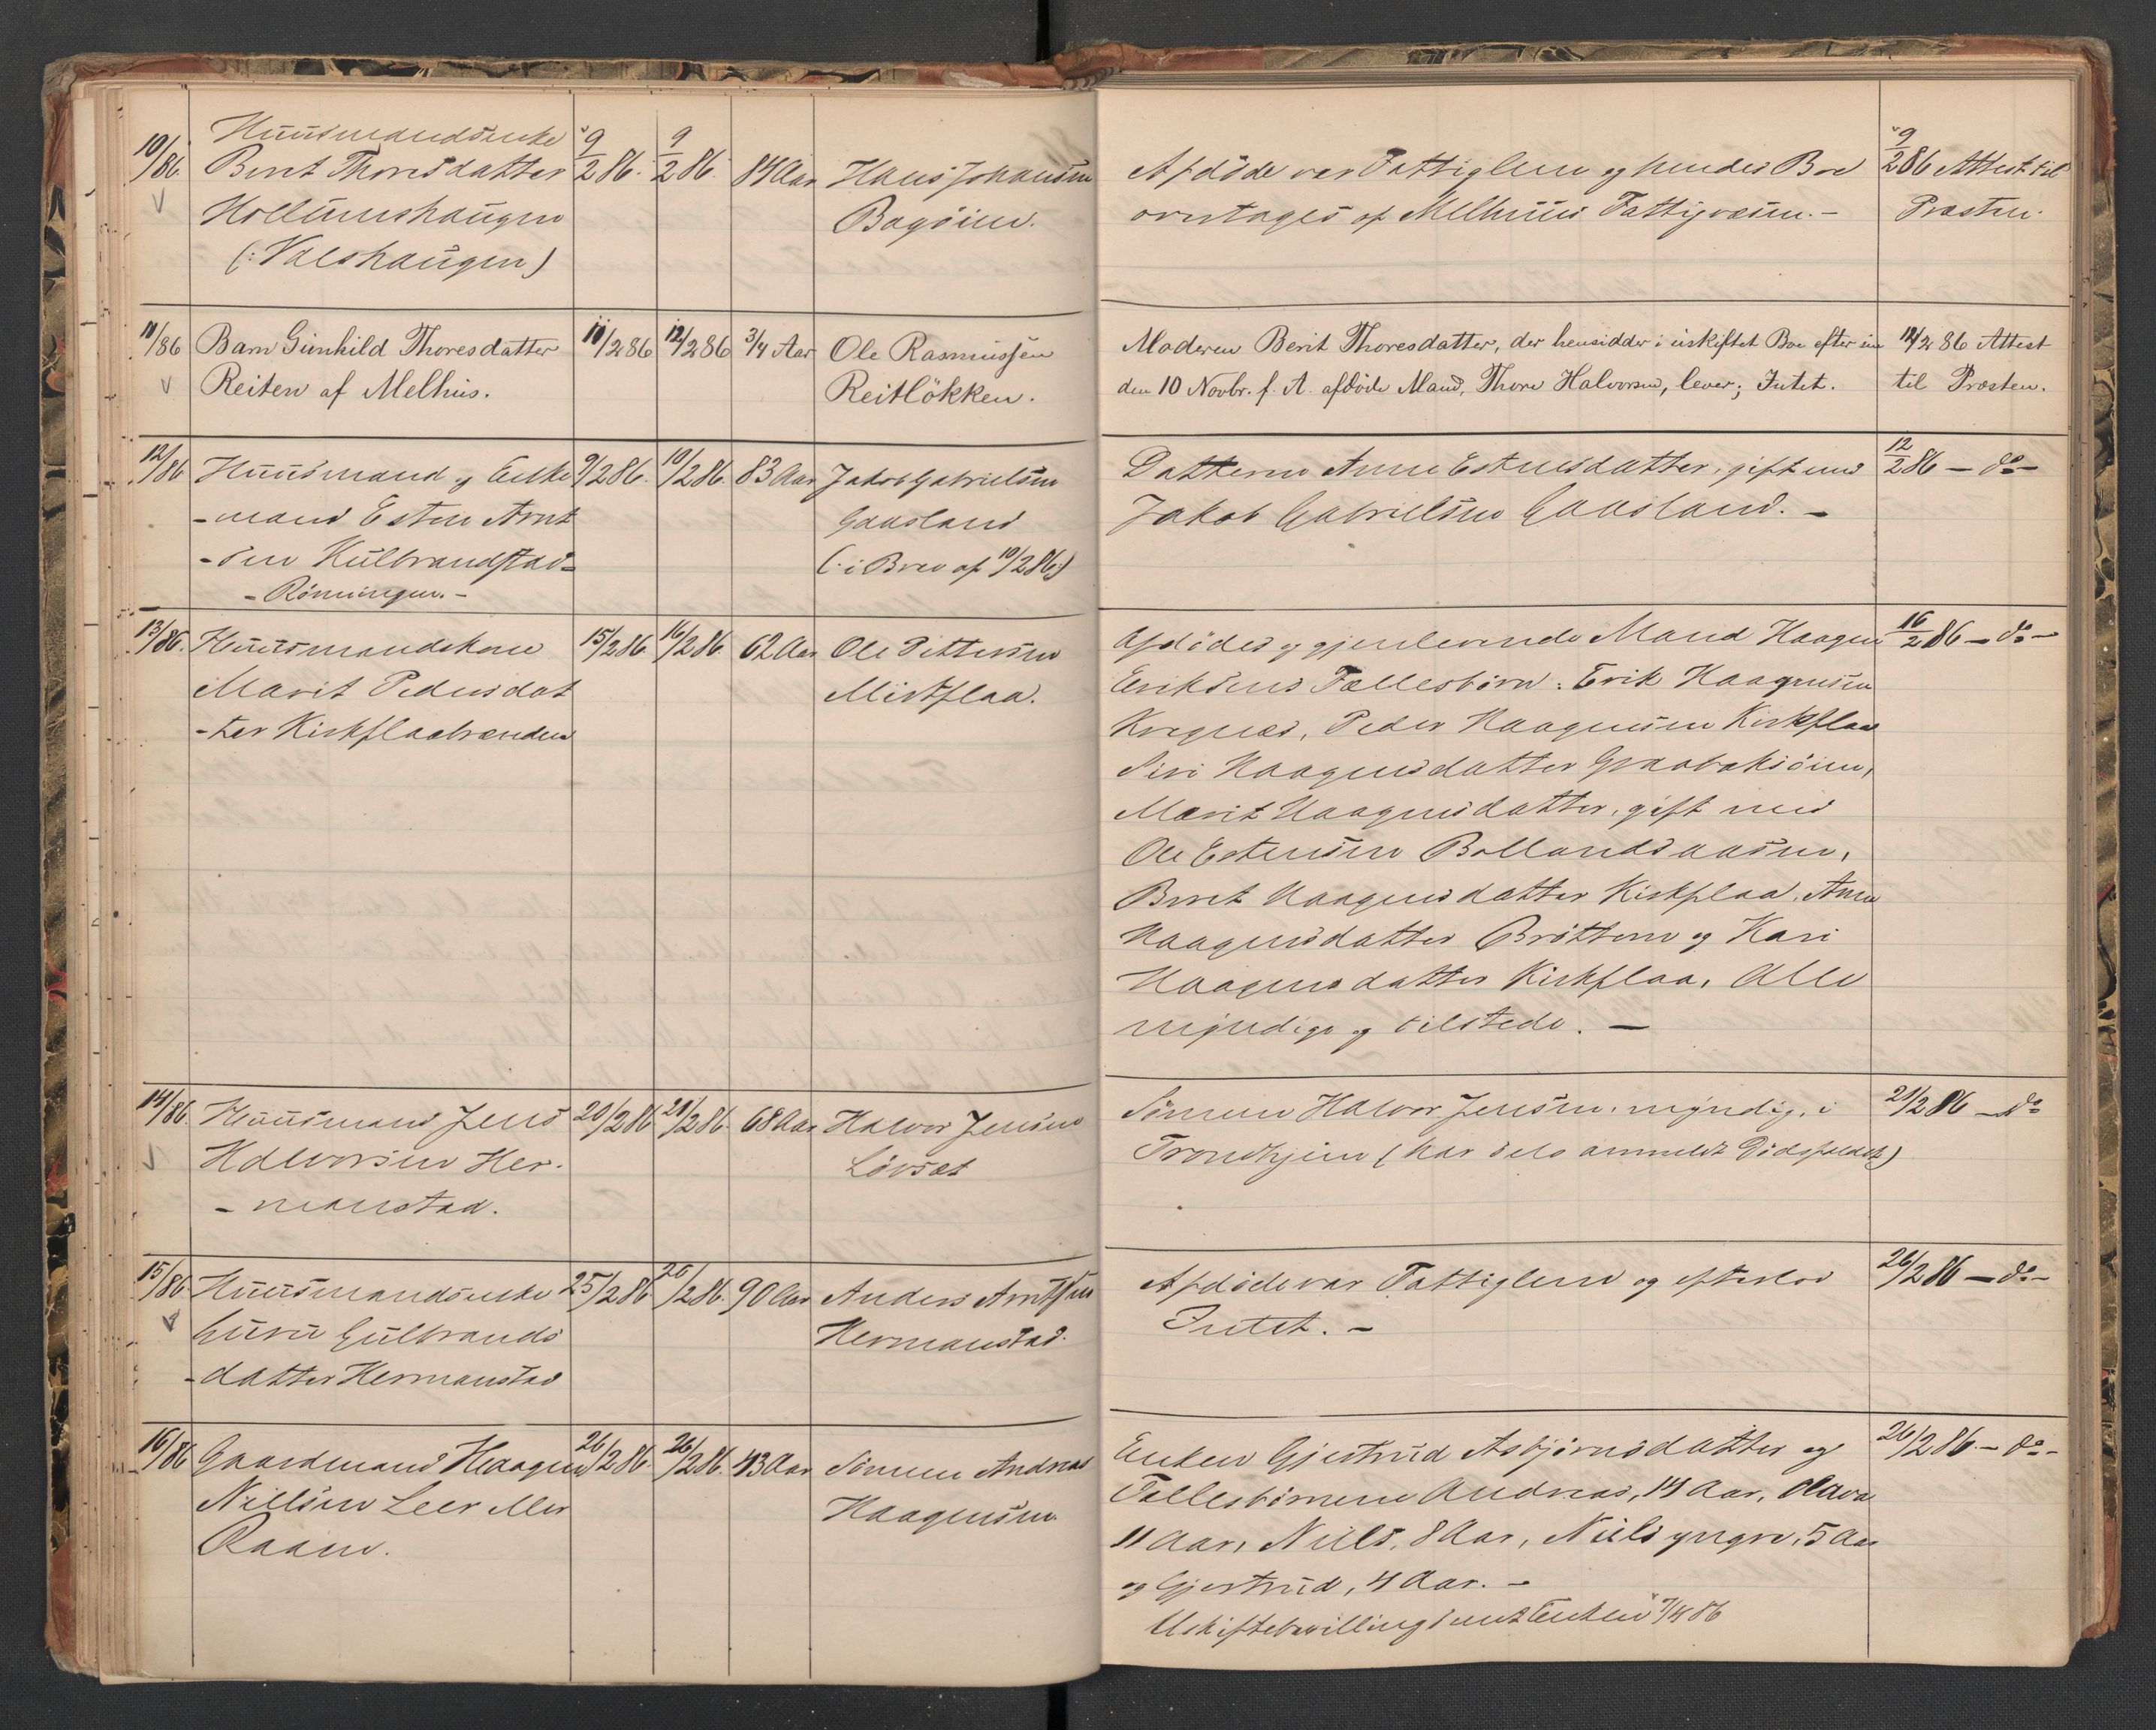 Huusmandsenke
10/86. Berit Thoresdatter 9/2 86. 9/2 86. 84 Aar Hans Johansen
Hollumshaugen Bagøien.
(: Valshaugen)
Afdøde var Fattiglem og hendes Boe 9/2 86 Attest til
overtages af Melhuus Fattigvæsen. – Præsten.
11/86 Barn Gunhild Thoresdatter 10/2 86 12/2 86 3/4 Aar Ole Rasmussen
Reiten af Melhus. Reitløkken.
Moderen Berit Thoresdatter, der hensidder i uskiftet Boe efter sin 12/2 86 Attest
den 10 Novbr. f. A. afdøde Mand, Thore Halvorsen, lever; Intet. til Præsten.
12/86 Huusmand og Enke 9/2 86. 10/2 86. 83 Aar Jakob Gabrielsen
-mand Esten Arnt Gaasland
-sen Kulbrandstad- (: i Brev af 10/2 86:)
-Rønningen. –
Datteren Anne Estensdatter, gift med 12/2 86 – do –
Jakob Gabrielsen Gaasland. –
13/86. Huusmandskone 15/2 86 16/2 86. 62 Aar Ole Pettersen
Marit Pedersdat Kirkflaa.
-ter Kirkflaabrænden
Afdødes og gjenlevende Mand Haagen 16/2 86 – do –
Eriksens Fællesbørn: Erik Haagensen
Peder Haagensen Kirkflaa
Siri Haagensdatter Graabaksøien,
Marit Haagensdatter, gift med
Ole Estensen Bollandsaasen,
Berit Haagensdatter Kirkflaa, Anne
Haagensdatter Brøttem og Kari
Haagensdatter Kirkflaa, Alle
myndige og tilstede. –
14/86. Huusmand Jens 20/2 86 21/2 86. 68 Aar Halvor Jensen
Halvorsen Her- Løvset
-manstad.
Sønnen Halvor Jensen, myndig, i 21/2 86 – do
Trondhjem (har selv anmeldt Dødsfaldet)
15/86 Huusmandsenke 25/2 86 26/2 86. 90 Aar Anders Arntsen
Guru Gulbrands Hermanstad.
-datter Hermanstad
Afdøde var Fattiglem og efterlod 26/2 86 – do –
Intet. –
16/86 Gaardmand Haagen 26/2 86. 26/2 86. 43 Aar Sønnen Andreas
Nielsen Leer Haagensen
Raaen.
Enken Gjertrud Asbjørnsdatter og 26/2 86. – do –
Fællesbørnene Andreas, 14 Aar, Olava
11 Aar, Niels, 8 Aar, Niels yngre, 5 Aar
og Gjertrud, 4 Aar. –
Uskiftebevilling sendt Enken 7/4 86